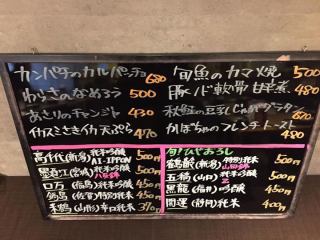 カンパチのカルパッチョ 680
わらさのなめろう 500
あさりのチャンジャ 430
イカスミさきイカ天ぷら 470
旬魚のカマ焼 500
豚バラ軟骨甘辛煮 480
秋鮭の豆乳じゃがグラタン 670
かぼちゃのフレンチトースト 480
高千代(新潟) 純米吟醸 500円
AI-IPPON
墨廼江(宮城) 純米吟醸 500円
八反錦
ロ万(福島) 純米吟醸 500円
鍋島(佐賀) 特別純米 450円
米鶴(山形) 辛口純米 370円
旬!ひやおろし
鶴齢(新潟) 特別純米 500円
山田錦
五橋(山口) 純米 500円
黒龍(福井) 吟醸 500円
開運(静岡) 純米 400円